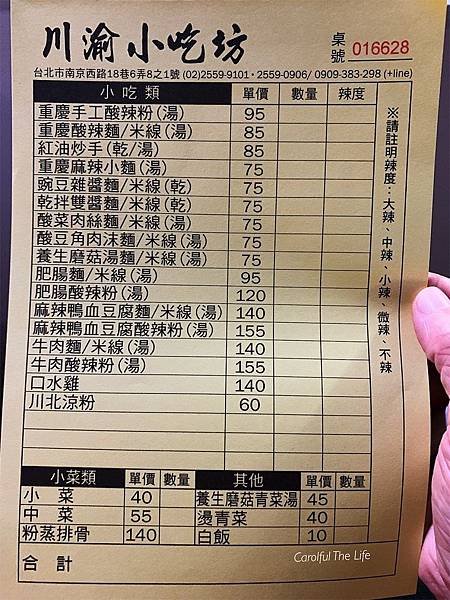 川渝小吃坊
桌號 016628
台北市南京西路18巷6弄8之1號 (02)2559-9101・2559-0906/ 0909-383-298 (+line)
小吃類 單價 數量 辣度
重慶手工酸辣粉(湯) 95
重慶酸辣麵/米線(湯) 85
紅油炒手(乾/湯) 85
重慶麻辣小麵(湯) 75
豌豆雜醬麵/米線(乾) 75
乾拌雙醬麵/米線(乾) 75
酸菜肉絲麵/米線(湯) 75
酸豆角肉沫麵/米線(湯) 75
養生磨菇湯麵/米線(湯) 75
肥腸麵/米線(湯) 95
肥腸酸辣粉(湯) 120
麻辣鴨血豆腐麵/米線(湯) 140
麻辣鴨血豆腐酸辣粉(湯) 155
牛肉麵/米線(湯) 140
牛肉酸辣粉(湯) 155
口水雞 140
川北涼粉 60
※請註明辣度:大辣、中辣、小辣、微辣、不辣
小菜類 單價 數量 其他 單價 數量
小菜 40 養生磨菇青菜湯 45
中菜 55 燙青菜 40
粉蒸排骨 140 白飯 10
合計
Carolful The Life